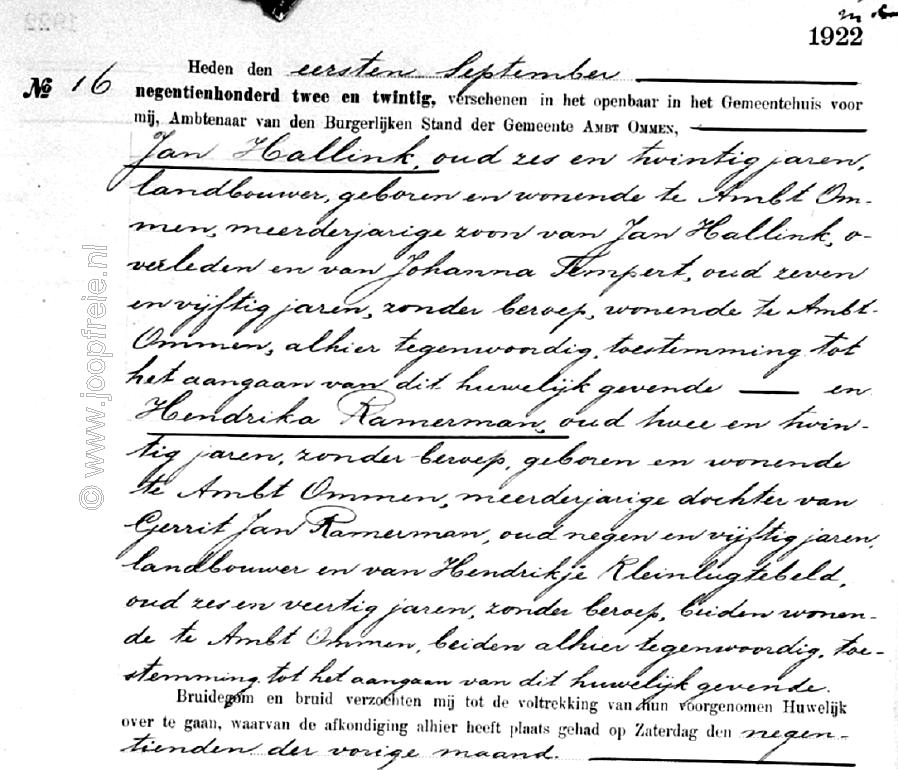 1922
Heden den eersten September
№ 16
negentienhonderd twee en twintig, verschenen in het openbaar in het Gemeentehuis voor
mij, Ambtenaar van den Burgerlijken Stand der Gemeente AMBT OMMEN,
Jan Hallink, oud zes en twintig jaren,
landbouwer, geboren en wonende te Ambt Om-
men, meerderjarige zoon van Jan Hallink, o-
verleden en van Johanna Tempert, oud zeven
en vijftig jaren, zonder beroep, wonende te Ambt-
Ommen, alhier tegenwoordig, toestemming tot
het aangaan van dit huwelijk gevende en
Hendrika Ramerman, oud twee en twin-
tig jaren, zonder beroep, geboren en wonende
te Ambt Ommen, meerderjarige dochter van
Gerrit Jan Ramerman, oud negen en vijftig jaren,
landbouwer en van Hendrikje Kleinlugtebeld,
oud zes en veertig jaren, zonder beroep, beiden wonen-
de te Ambt Ommen, beiden alhier tegenwoordig, toe-
stemming tot het aangaan van dit huwelijk gevende.
Bruidegom en bruid verzochten mij tot de voltrekking van hun voorgenomen Huwelijk
over te gaan, waarvan de afkondiging alhier heeft plaats gehad op Zaterdag den negen-
tienden der vorige maand.
© www.joopfreie.nl